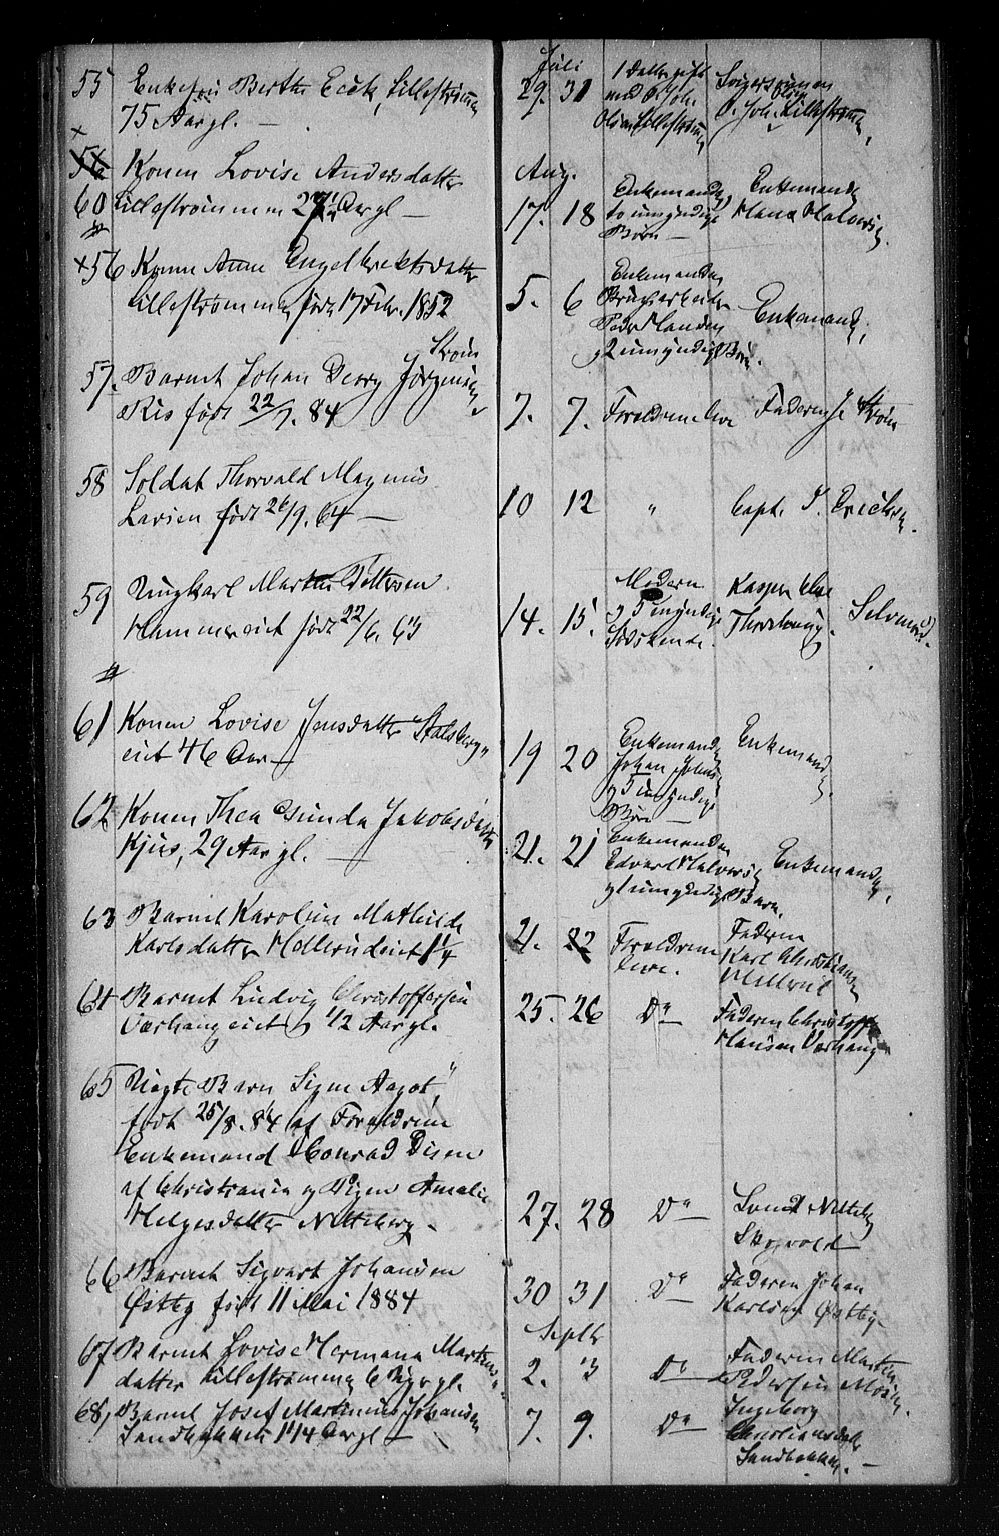 55 Enkefru Berthe Eeek, Lillestrømmen
75 Aar gl. —
Juli
29. 31
1 Datter gift
med O. Joh.
Olsen Lillestrømmen
Svigersønnen
O. Joh. Olsen Lillestrømmen
60 Konen Lovise Andersdatter
Lillestrømmen 27 1/4 Aar gl —
Aug.
17. 18
Enkemanden
to umyndige
Børn —
Enkemanden
Hans Halvorsen
×56 Konen Anne Engelbrektsdatter
Lillestrømmen født 17 Febr. 1852
5. 6
Enkemanden
Brugsarbeider
Peder Hansen
2 umyndige Børn.
Enkemanden
57. Barnet Johan Georg Jørgensen Strøm
Riis født 22/7. 84
7. 7. Forældrene leve
Faderen J. Strøm
58 Soldat Thorvald Magnus
Larsen født 26/9. 64 —
10 12 " Capt. T. Erichsen.
59 Ungkarl Martin Pettersen
Hammereiet født 22/6. 63
14. 15.
Moderen
og 5 umyndige
Sødskende.
Kasper Olsen
Thorshaug.
Selvmord.
61 Konen Lovise Jensdatter Stalsberg"
eiet 46 Aar —
19 20
Enkemanden
Johan
og 5 umyndige
Børn —
Enkemanden.
62 Konen Thea Gunda Jakobsdatter
Kjus, 29 Aar gl. —
21. 21
Enkemanden
Edvard Halvorsen
og 1 umyndigt Barn.
Enkemanden.
63 Barnet Karoline Mathilde
Karlsdatter Mellerudeiet 1 1/4
21. 22 Forældrene
leve.
Faderen
Karl Christiansen
Mellerud
64 Barnet Ludvig Christoffersen
Varhaugeiet 1/2 Aar gl.
25. 26 Do
Faderen Christoffer
Hansen Varhaug
65 Uægte Barn Signe Aagot,
født 25/8. 84 af Forældrene
Enkemand Conrad Disen
af Christiania og Pigen Amalie
Helgesdatter Nitteberg.
27. 28 Do —
Svend Nitteberg
Skovold
66 Barnet Sigvart Johansen
Østby født 11 Mai 1884
30 31 Do —
Faderen Johan
Karlsen Østby
Septb
67 Barnet Lovise Hermana Martins"
datter Lillestrømmen 6 Aar gl.
2. 3 Do —
Faderen Martin
Pedersen Moen.
68, Barnet Josef Martinius Johansen
Sandbækken 1 1/4 Aar gl —
7. 9. Do —
Ingeborg
Christiansdatter
Sandbækken. —